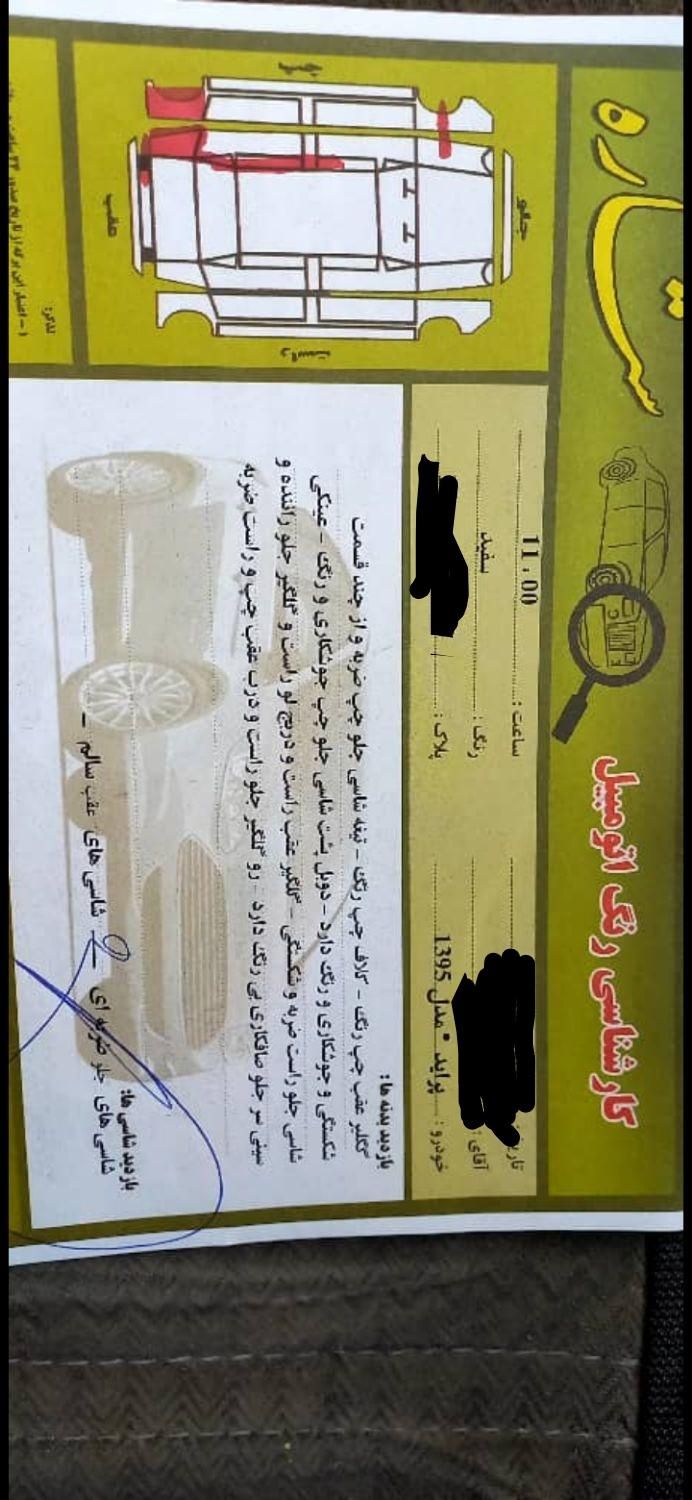 ستاره
کارشناسی رنگ اتومبیل
ساعت : 11.00
رنگ : سفید
آقای :
پلاک :
خودرو : پراید * مدل 1395
جلو
عقب
راست
تذکر:
بازدید بدنه ها :
گلگیر عقب چپ رنگ - کلاف چپ رنگ - تیغه شاسی جلو چپ ضربه و از چند قسمت
شکستگی و جوشکاری و رنگ دارد - دوبل پشت شاسی جلو چپ جوشکاری و رنگ - عینکی
شاسی جلو راست ضربه و شکستگی - گلگیر عقب راست و دریچ لو راست و گلگیر جلو راننده و
سینی سر جلو صافکاری بی رنگ دارد - رو گلگیر جلو راست و درب عقب چپ و راست ضربه
بازدید شاسی ها:
شاسی های جلو ضربه ای - شاسی های عقب سالم -